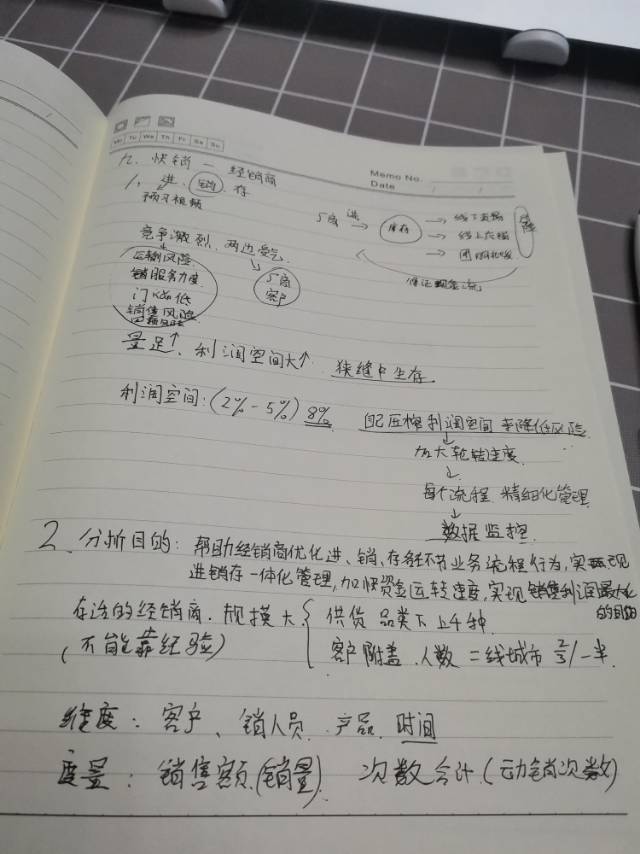 Mo Tu We Th Fr Sa Su
Memo No.
Date / /
九、快销 — 经销商
1、进、销、存
预习视频
厂商 进 → 库存 → 线下直销
→ 线上
→ 团购
保证现金流
竞争激烈,两边受气
厂商
客户
运输风险
销服务力度
门 低
销售风险
量足↑,利润空间大↑ 狭缝中生存
利润空间:(2% - 5%) 8% 自己压榨利润空间 来降低风险
↓
加大轮转速度
↓
每个流程 精细化管理
↓
数据监控
2、分析目的:帮助经销商优化进、销、存各环节业务流程行为,实现
进销存一体化管理,加快资金运转速度,实现销售利润最大化
的目的
存活的经销商.规模大 { 供货 品类 下上千种
(不能靠经验) 客户附盖 人数 二线城市 2/3/一半
维度:客户、销人员、产品、时间
度量:销售额.(销量) 次数合计.(动销次数)